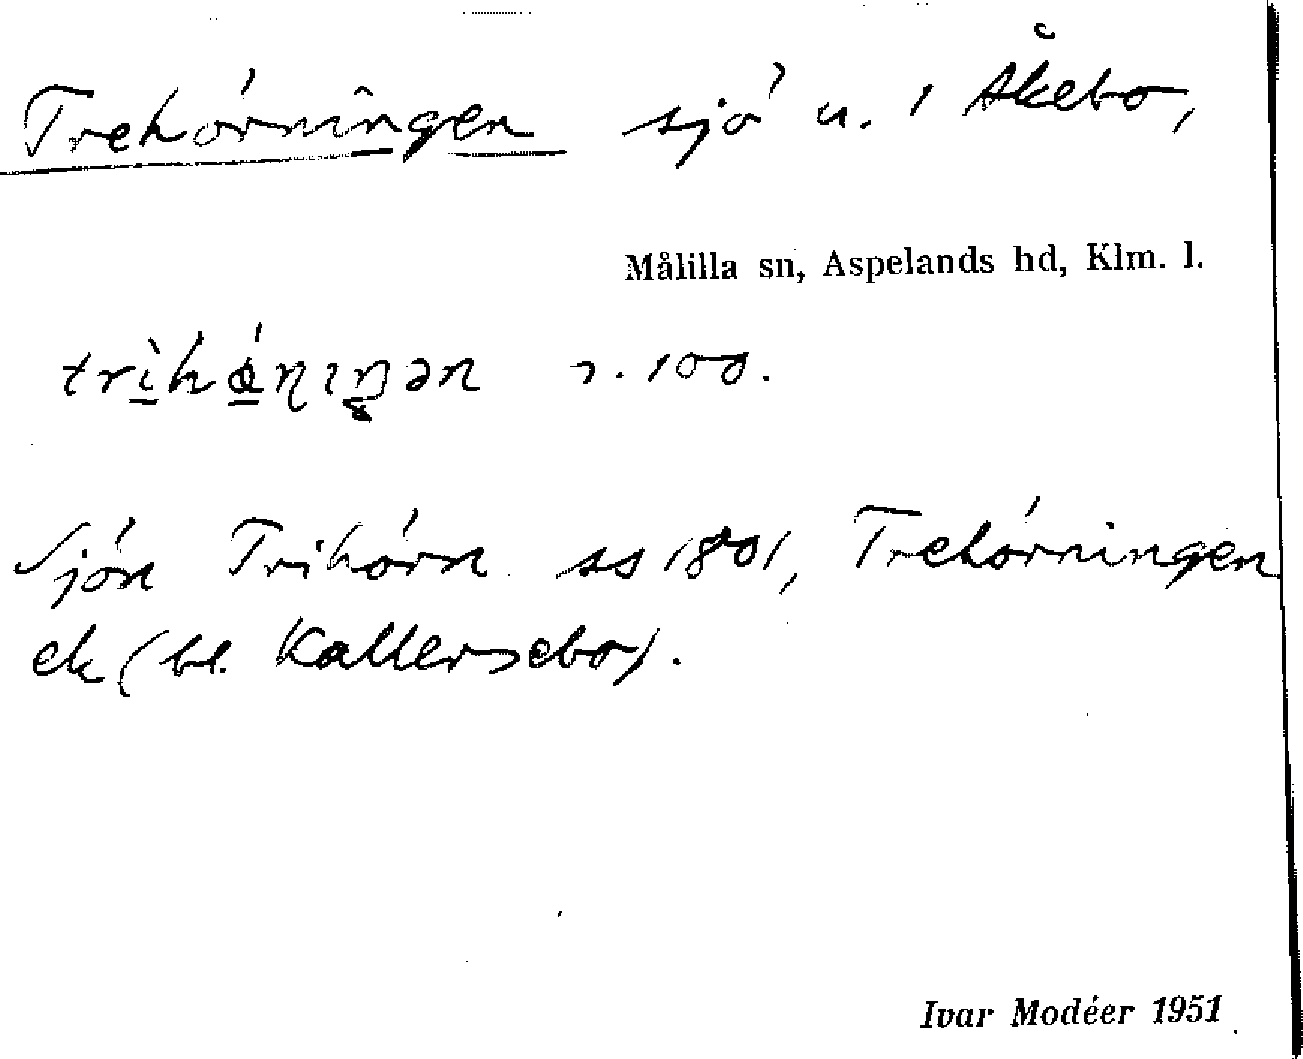 Trehörningen sjö n. i Åkebo,
Målilla sn, Aspelands hd, Klm. l.
100.
Sjön Trihörn ss 1801, Trehörningen
ek (bl. Kallersebo).
Ivar Modéer 1951